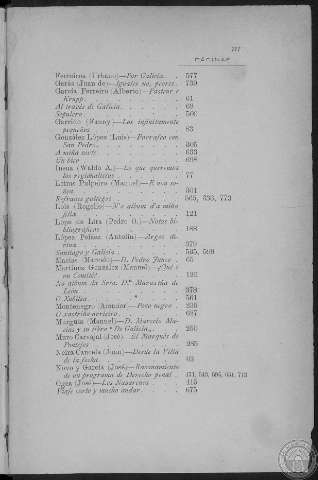 III
PÁGINAS
Ferreiros (Urbano)—Por Galicia. . 577
García (Juan de)—Iguales no, peores. . 739
García Ferreiro (Alberto)—Pasteur e
Krupp. . 61
Al través de Galicia. . 68
Sepulcro. . 560
Garrido (Wanny)—Los infinitamente
pequeños . 83
González López (Luis)—Parrafeo con
San Pedro. . 305
A miña morte . 633
Un bico . 698
Insua (Waldo A.)—Lo que queremos
los regionalistas . 77
Leiras Pulpeiro (Manuel)—E ora so-
501
Refranes gallegos 565, 636, 773
Lois (Rogelio)—N'o album d'a miña
filla . 121
Lope de Lira (Pedro O.)—Notas bi-
bliográficas . 188
López Peláez (Antolín)—
379
Santiago y Galicia . 505, 589
Macías (Marcelo)—D. Pedro 65
Martínez González (Manuel)—¿Qué é
un Comité? 126
No album da Srta. D.ª Maruxiña de
León . 378
O Xubileo . 561
Montenegro (Amador)—Peso negro . 255
O rastriño acrieiro . 627
Murguía (Manuel)—D. Marcelo Ma-
cías y su libro "De Galicia". 250
Muro Carvajal (José)—El Marqués de
Pontejos . 285
Neira Cancela (Juan)—Desde la Villa
de la fecha . 63
Novo y García (José)—Razonamiento
de un programa de Derecho penal . 471, 543, 596, 651, 713
Ogea (José)—Los Navarrizas . 415
Viaje corto y mucho andar . 675